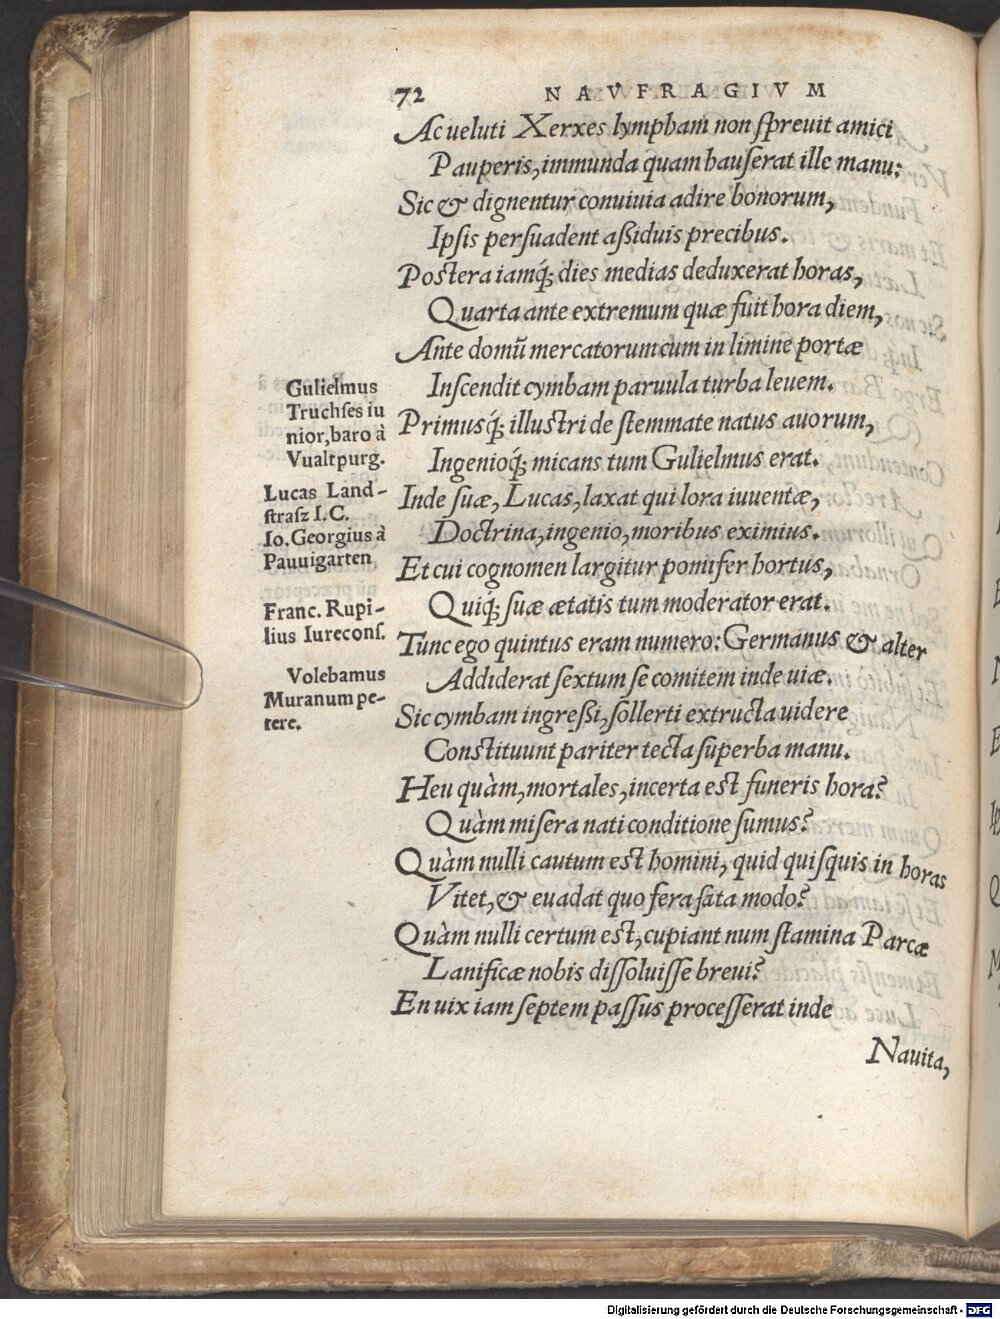 72 NAVFRAGIVM
Ac ueluti Xerxes lympham non ſpreuit amici
Pauperis, immunda quam hauſerat ille manu:
Sic & dignentur conuiuia adire bonorum,
Ipſis perſuadent aßiduis precibus.
Postera iamq́; dies medias deduxerat horas,
Quarta ante extremum quæ fuit hora diem,
Ante domū mercatorum cum in limine portæ
Inſcendit cymbam paruula turba leuem.
Primusq́; illustri de ſtemmate natus auorum,
Ingenioq́; micans tum Gulielmus erat.
Inde ſuæ, Lucas, laxat qui lora iuuentæ,
Doctrina, ingenio, moribus eximius.
Et cui cognomen largitur pomifer hortus,
Quiq́; ſuæ ætatis tum moderator erat.
Tunc ego quintus eram numero: Germanus & alter
Addiderat ſextum ſe comitem inde uiæ.
Sic cymbam ingreßi, ſollerti extructa uidere
Constituunt pariter tecta ſuperba manu.
Heu quàm, mortales, incerta est funeris hora?
Quàm miſera nati conditione ſumus?
Quàm nulli cautum est homini, quid quiſquis in horas
Vitet, & euadat quo fera fata modo?
Quàm nulli certum est, cupiant num ſtamina Parcæ
Lanificæ nobis diſſoluiſſe breui?
En uix iam ſeptem paſſus proceſſerat inde
Nauita,
Gulielmus
Truchſes iu
nior, baro à
Vualtpurg.
Lucas Land-
ſtraſz I. C.
Io. Georgius à
Pauuigarten
Franc. Rupi-
lius Iureconſ.
Volebamus
Muranum pe-
tere.
Digitalisierung gefördert durch die Deutsche Forschungsgemeinschaft - DFG